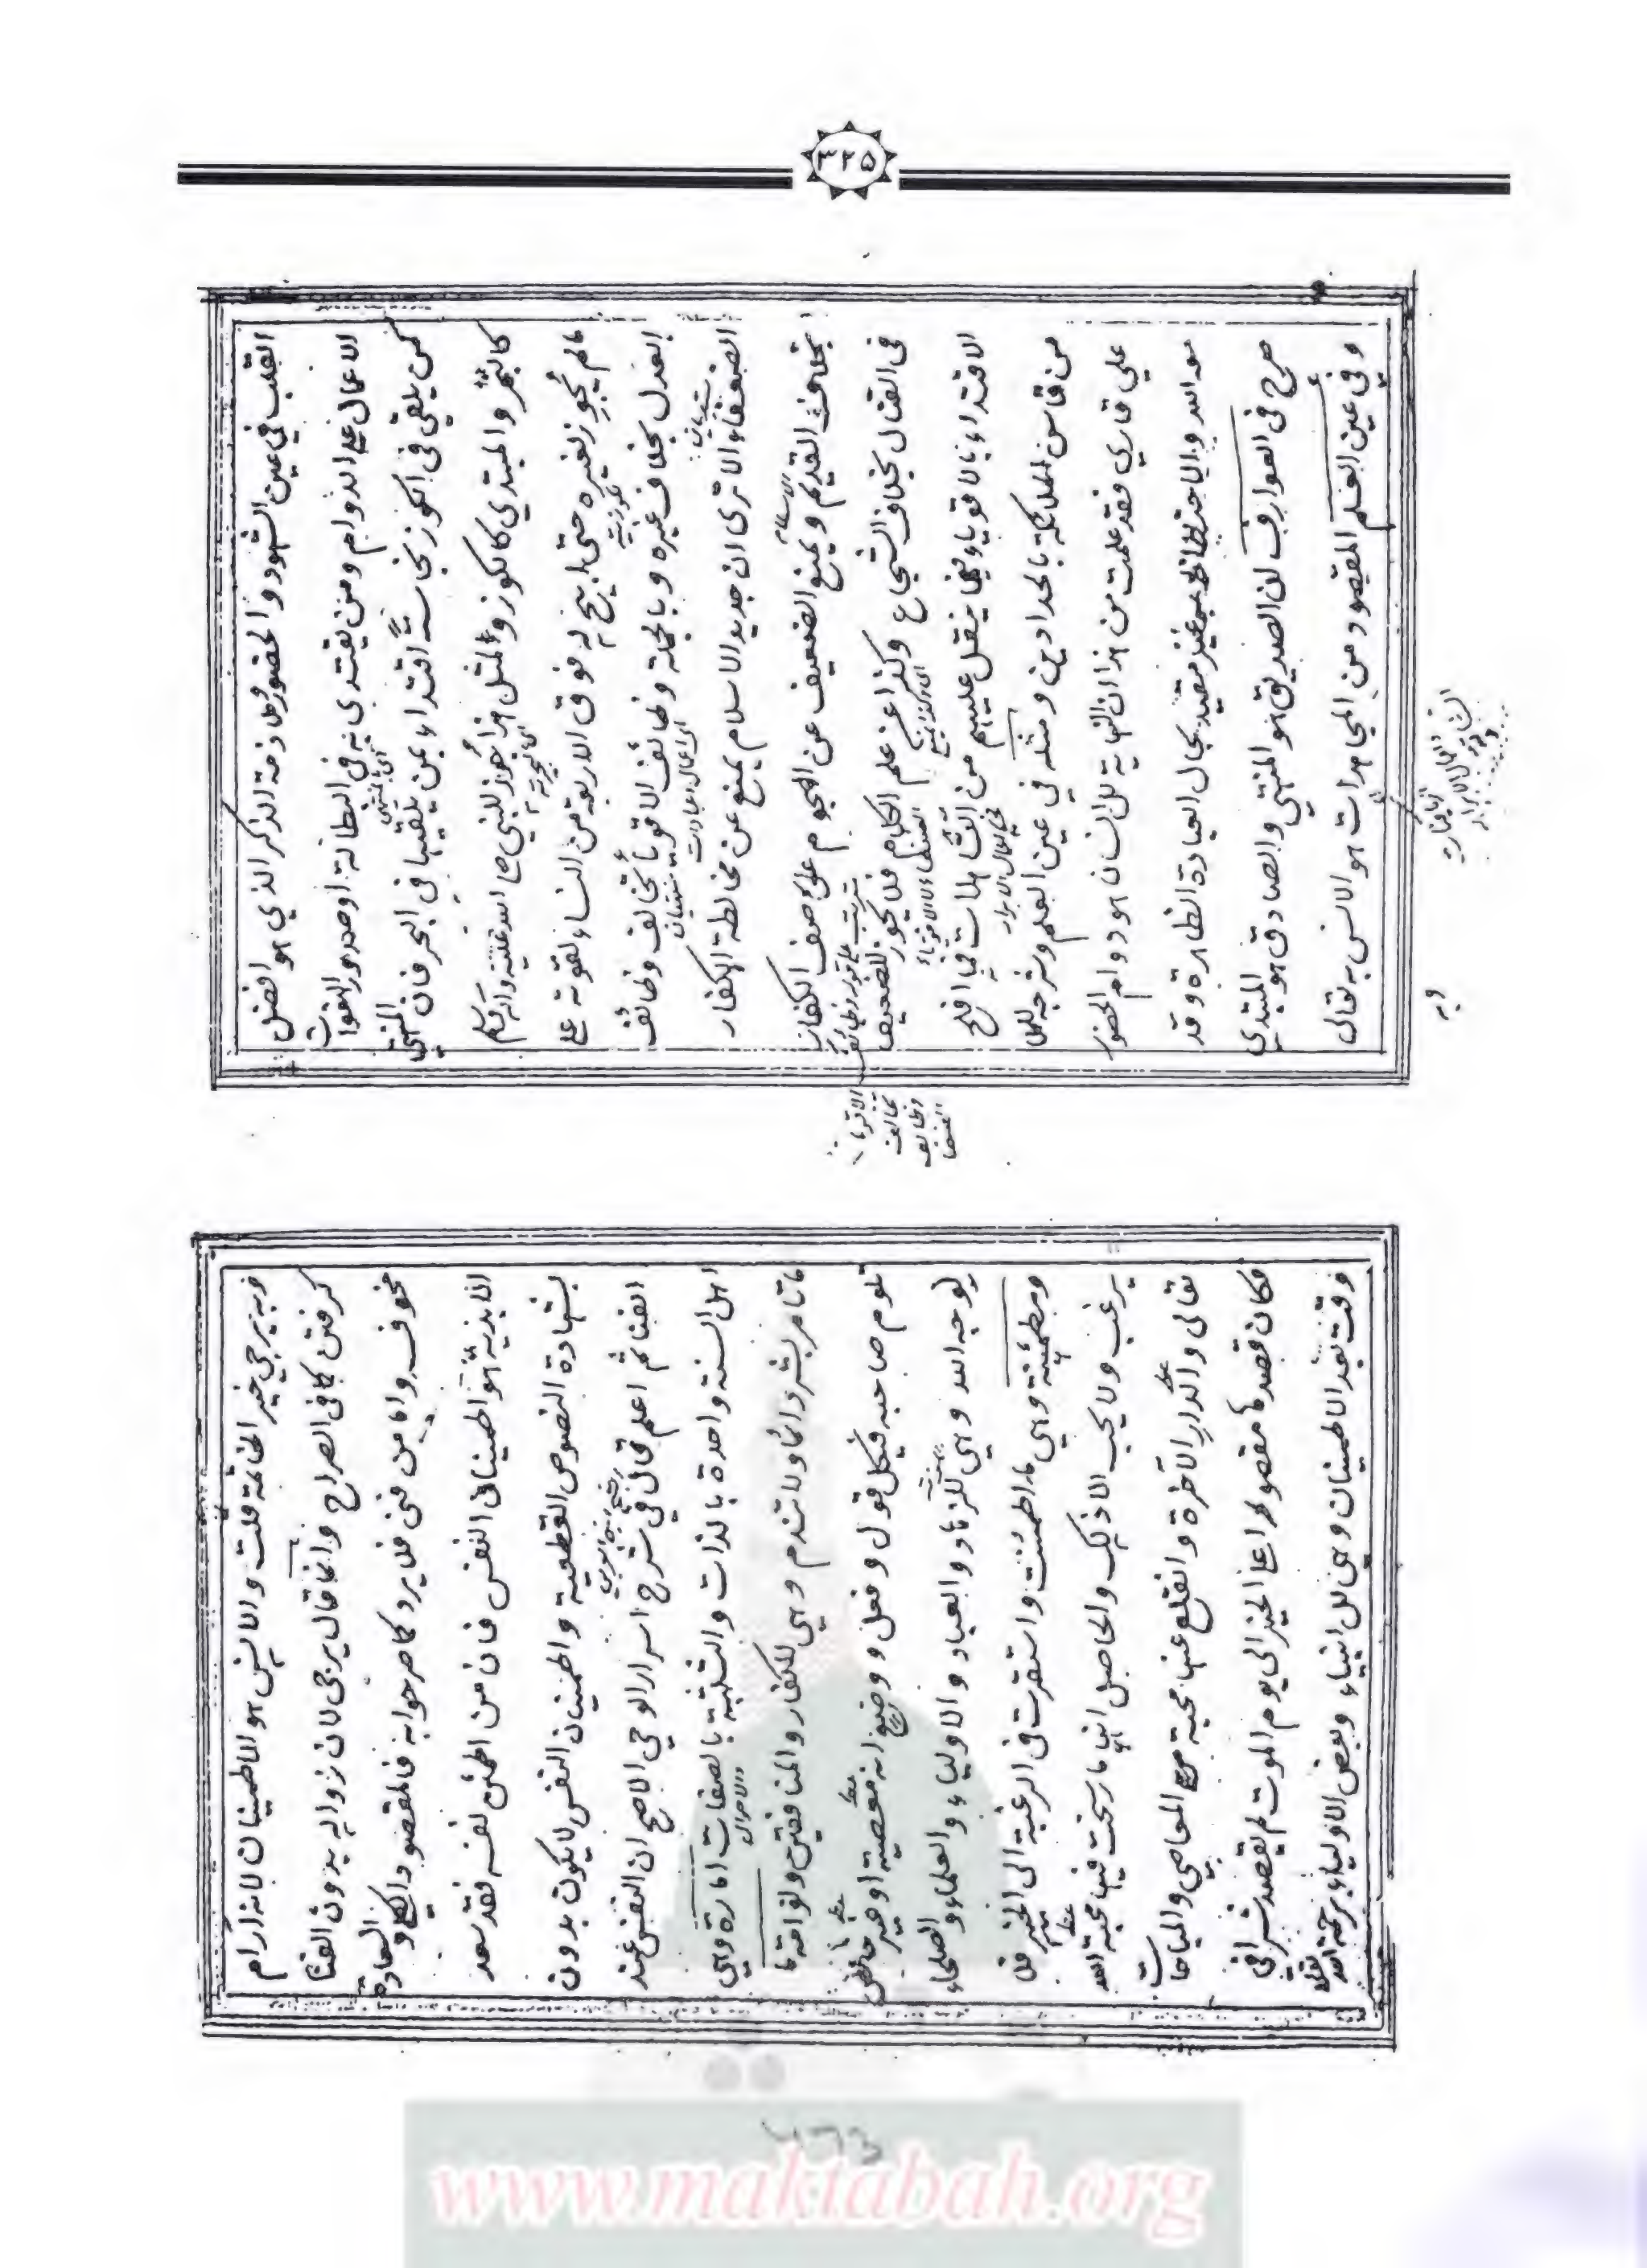 ٣٢٥
القلب في عين الشهود والحضور ملازمة الذكر الذي هو افضل
الاعمال على الدوام ومن يقتدى به في البطالة او صدور الهفوات
كمن يلقي في الكوز نجاسةً اقتداء بمن يلقيها في البحر فان المنتهي
كالبحر والمبتدي كالكوز ولمثل هذا جُوّز للنبي صلى الله عليه واله وسلم
مالم يُجوز لغيره حتى ابيح له فوق الاربعة من النساء لقوته على
العدل بخلاف غيره وبالجملة وظائف الاقوياء تخالف وظائف
الضعفاء الا ترى ان جديد الاسلام يمنع عن مخالطة الكفار
بخلاف القديم ويمنع الضعيف عن الهجوم على صف الكفار
في القتال بخلاف الشجاع وكذا علم الكلام فلا يجوز للضعيف
الاقتداء بالاقوياء فيما ينقل عليهم من التساهلات فما افلح
من قاس الملائكة بالحدادين ومثله في عين العلم وشرحه للملا
علي قاري فقد علمت من هذا ان النهاية للانسان هو دوام الحضور
مع الله والاحتظاظ به غير مقيد بحال العبادة الظاهرة وقد
صرح في العوارف ان الصديق هو المنتهي والصادق هو المبتدي
وفي عين العلم المقصود من المجاهدات هو الانس به تعالى
وبه
الاقويا تخالف وظائف الضعفا
وبه يرجى خير الخاتمة قلت والانس هو الاطمينان لانه ارام
كرفتن كما في الصراح وانما قال يرجى لان زواله بدون الفنا
مخوف واما من فني فلا يرد كما مر جوابه فالمقصود الكلي والسعادة
الابدية هو اطمينان النفس فان من اطمئن نفسه فقد سعد
بشهادة النصوص القطعية واطمينان النفس لايكون بدون
الفنا ثم اعلم قال في شرح اسرار الوحي الاصح ان النفس عند
اهل السنة واحدة بالذات والثلثة بالصفات امارة وهي
ما تامر بشر دائما ولا تندم وهي للكفار والمنافقين ولوامة ما
تلوم صاحبه في كل قول وفعل ووضع انه معصية او خير خالص
لوجه الله وهي للزهاد والعباد والاولياء والعلماء والصلحاء
ومطمئنة وهي ما اطمئنت واستقرت في الرغبة الى الخير فلا
يرغب ولا يحب الا ذلك والحاصل انها ما رسخت فيها محبة الله
تعالى والدار الآخرة وانقلع عنها محبة المعاصي والمباحات
فكان قصدها مقصورا على الخير الى يوم الموت لم يقصد شرا في
وقت بعد الاطمينان وهي للانبياء وبعض الاولياء برحمة الله تعالى
www.maktabah.org